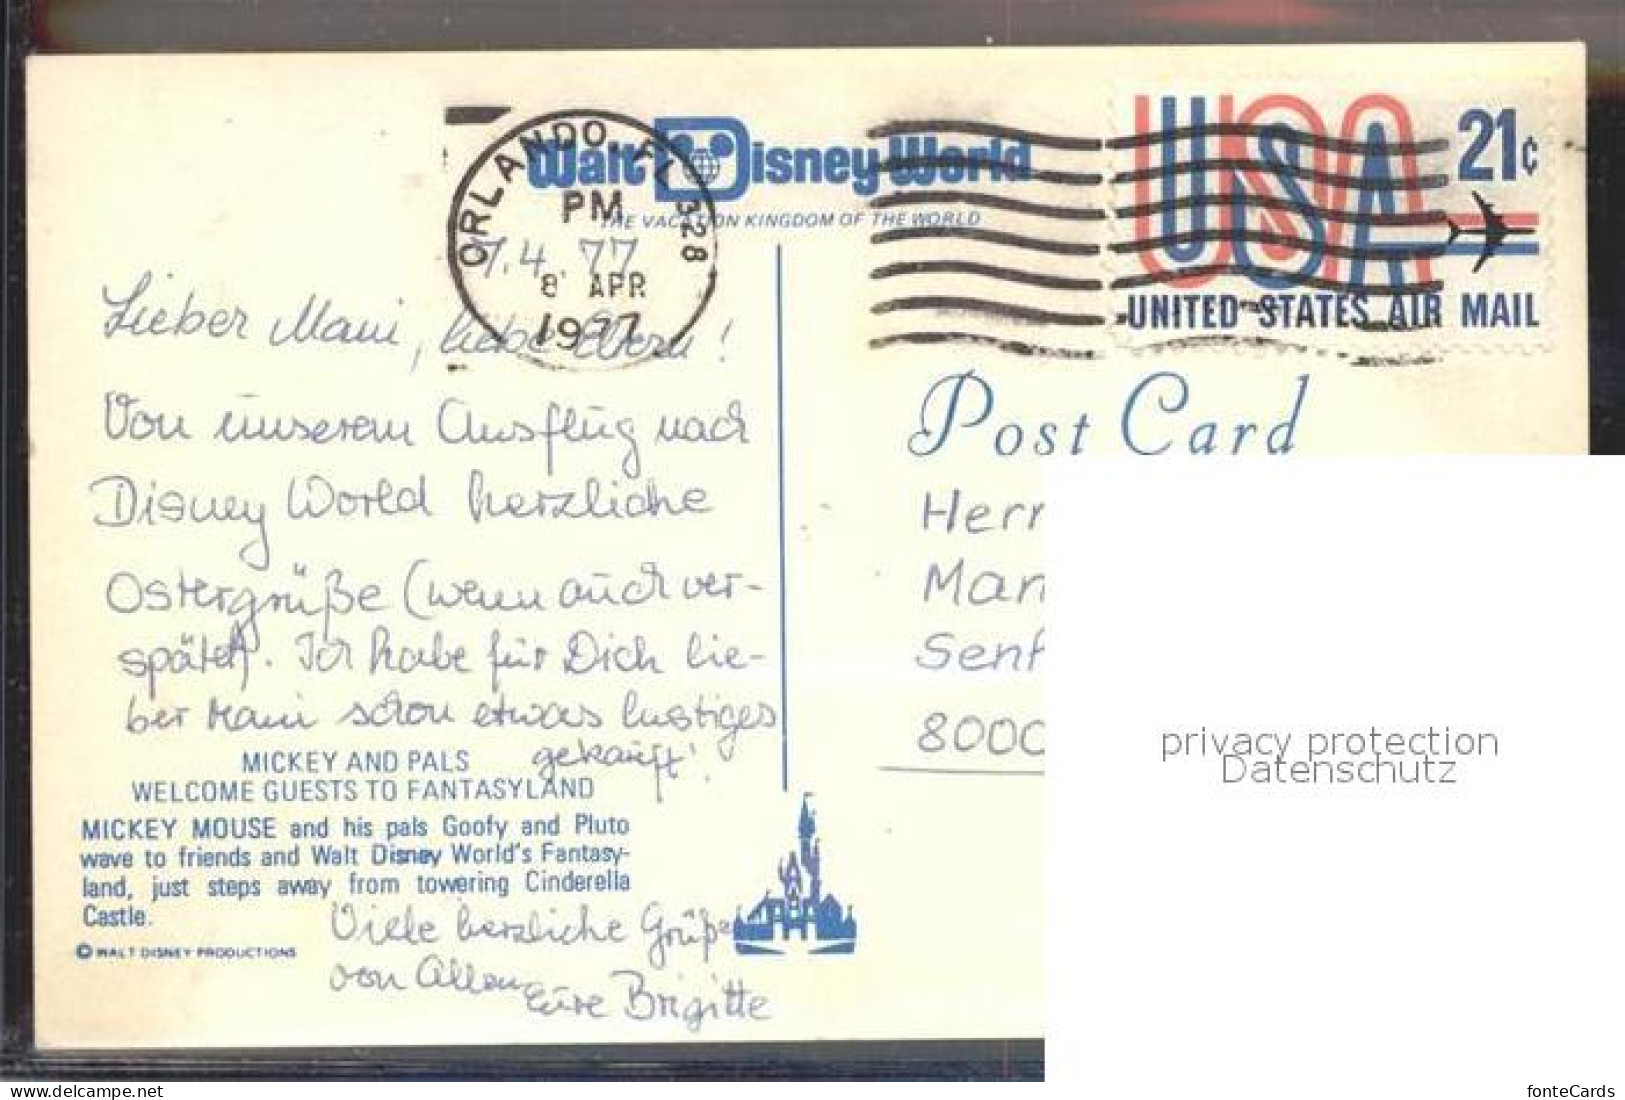 Walt Disney World
THE VACATION KINGDOM OF THE WORLD
ORLANDO, FL 328
PM
8 APR
1977
USA 21¢
UNITED STATES AIR MAIL
Post Card
7.4.77
Lieber Mani, liebe Eltern!
Von unserem Ausflug nach
Disney World herzliche
Ostergrüße (wenn auch ver-
spätet). Ich habe für Dich lie-
ber Mani schon etwas lustiges
gekauft!
MICKEY AND PALS
WELCOME GUESTS TO FANTASYLAND
MICKEY MOUSE and his pals Goofy and Pluto
wave to friends and Walt Disney World's Fantasy-
land, just steps away from towering Cinderella
Castle.
© WALT DISNEY PRODUCTIONS
Viele herzliche Grüße
von Allen
Eure Brigitte
Herr
Man
Sen
8000
privacy protection
Datenschutz
fonteCards